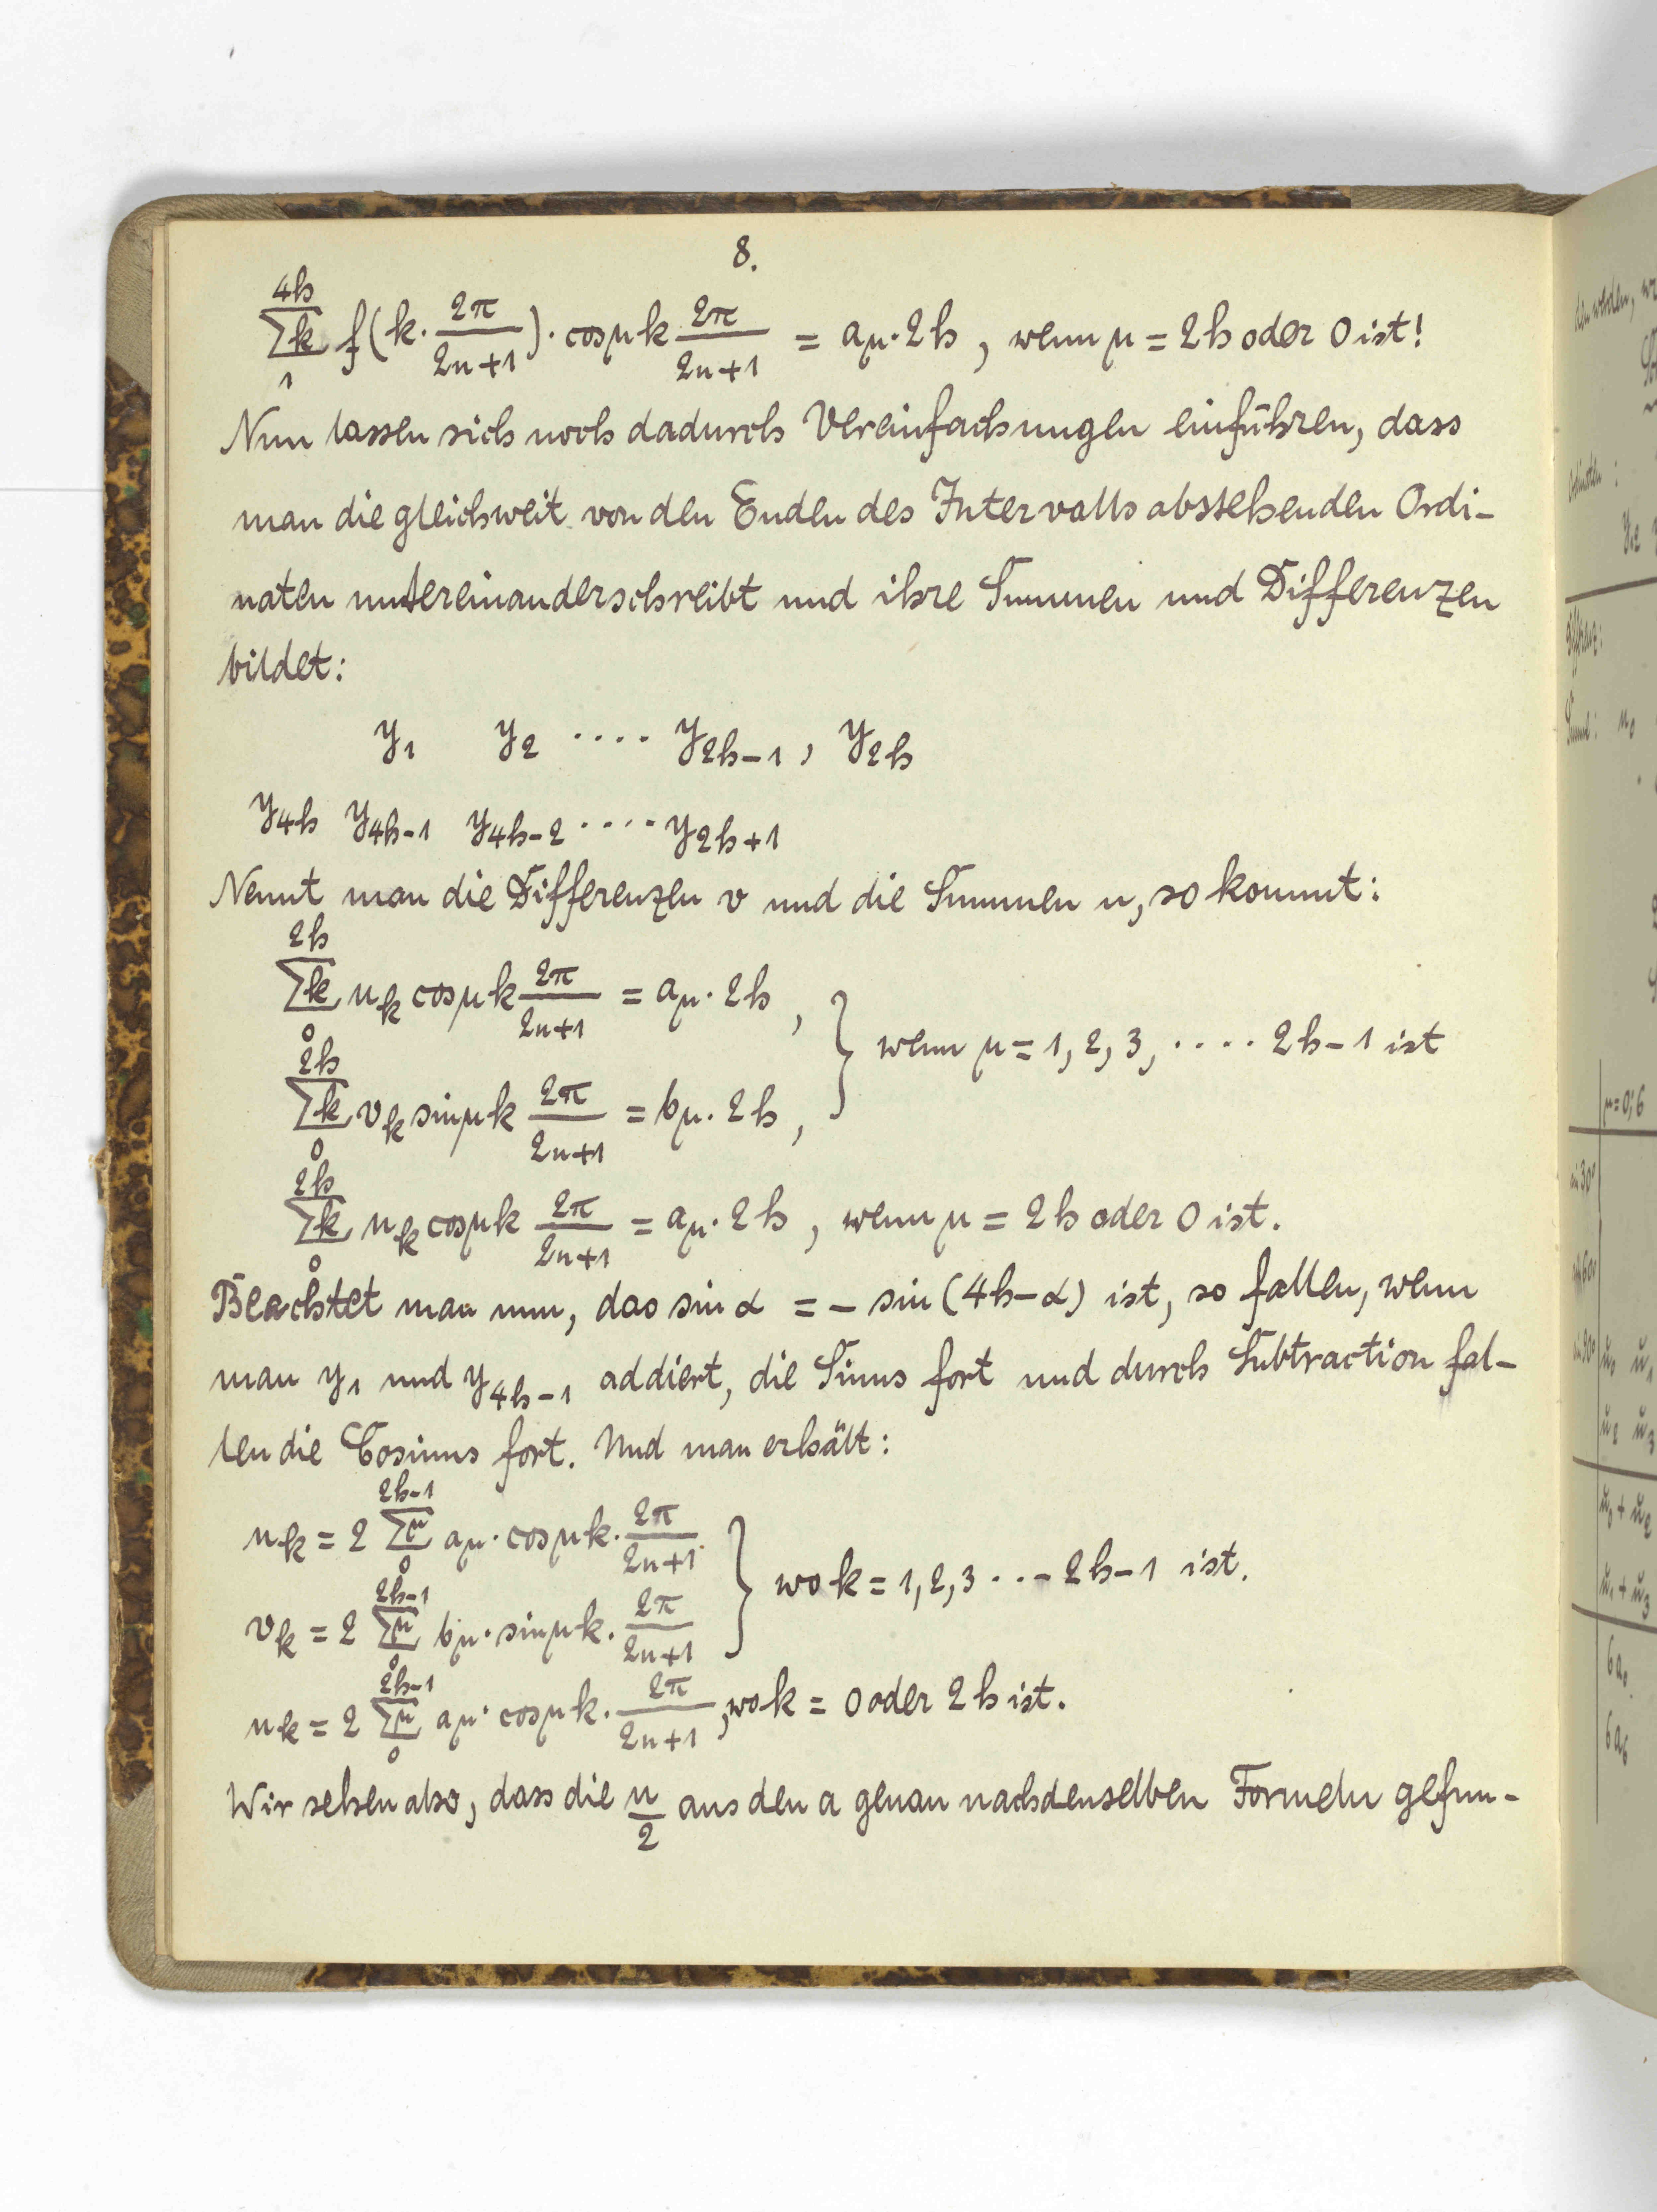 8.
4h ∑k 1 f(k·2π/2n+1)·cosμk 2π/2n+1 = aμ·2h, wenn μ = 2h oder 0 ist!
Nun lassen sich noch dadurch Vereinfachungen einführen, dass
man die gleichweit von den Enden des Intervalls abstehenden Ordi-
naten untereinanderschreibt und ihre Summen und Differenzen
bildet:
y₁ y₂ ···· y₂ₕ₋₁, y₂ₕ
y₄ₕ y₄ₕ₋₁ y₄ₕ₋₂ ···· y₂ₕ₊₁
Nennt man die Differenzen v und die Summen u, so kommt:
2h ∑k 0 uₖ cosμk 2π/2n+1 = aμ·2h,
2h ∑k 0 vₖ sinμk 2π/2n+1 = bμ·2h, } wenn μ = 1, 2, 3, ···· 2h-1 ist
2h ∑k 0 uₖ cosμk 2π/2n+1 = aμ·2h, wenn μ = 2h oder 0 ist.
Beachtet man nun, das sin α = - sin (4h-α) ist, so fallen, wenn
man y₁ und y₄ₕ₋₁ addiert, die Sinus fort und durch Subtraction fal-
len die Cosinus fort. Und man erhält:
uₖ = 2 2h-1 ∑μ 0 aμ·cosμk·2π/2n+1
vₖ = 2 2h-1 ∑μ 0 bμ·sinμk·2π/2n+1 } wo k = 1, 2, 3 ··-- 2h-1 ist.
uₖ = 2 2h-1 ∑μ 0 aμ·cosμk·2π/2n+1, wo k = 0 oder 2h ist.
Wir sehen also, dass die u/2 aus den a genau nach denselben Formeln gefun-
den werden,
μ=0;6
u₀ u₁
u₂ u₃
u₀+u₂
u₁+u₃
6a₀
6a₆